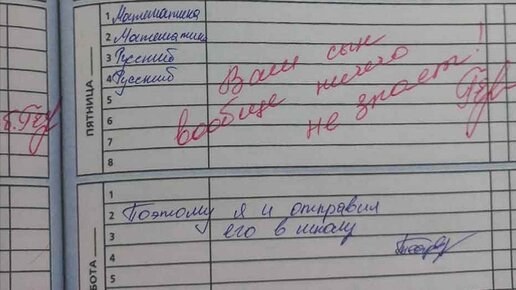 1 Математика
2 Математика
3 Русский
4 Русский
5
6
7
8
ПЯТНИЦА
Ваш сын
вообще ничего
не знает!
1
2 Поэтому я и отправил
3 его в школу
4
5
БОТА